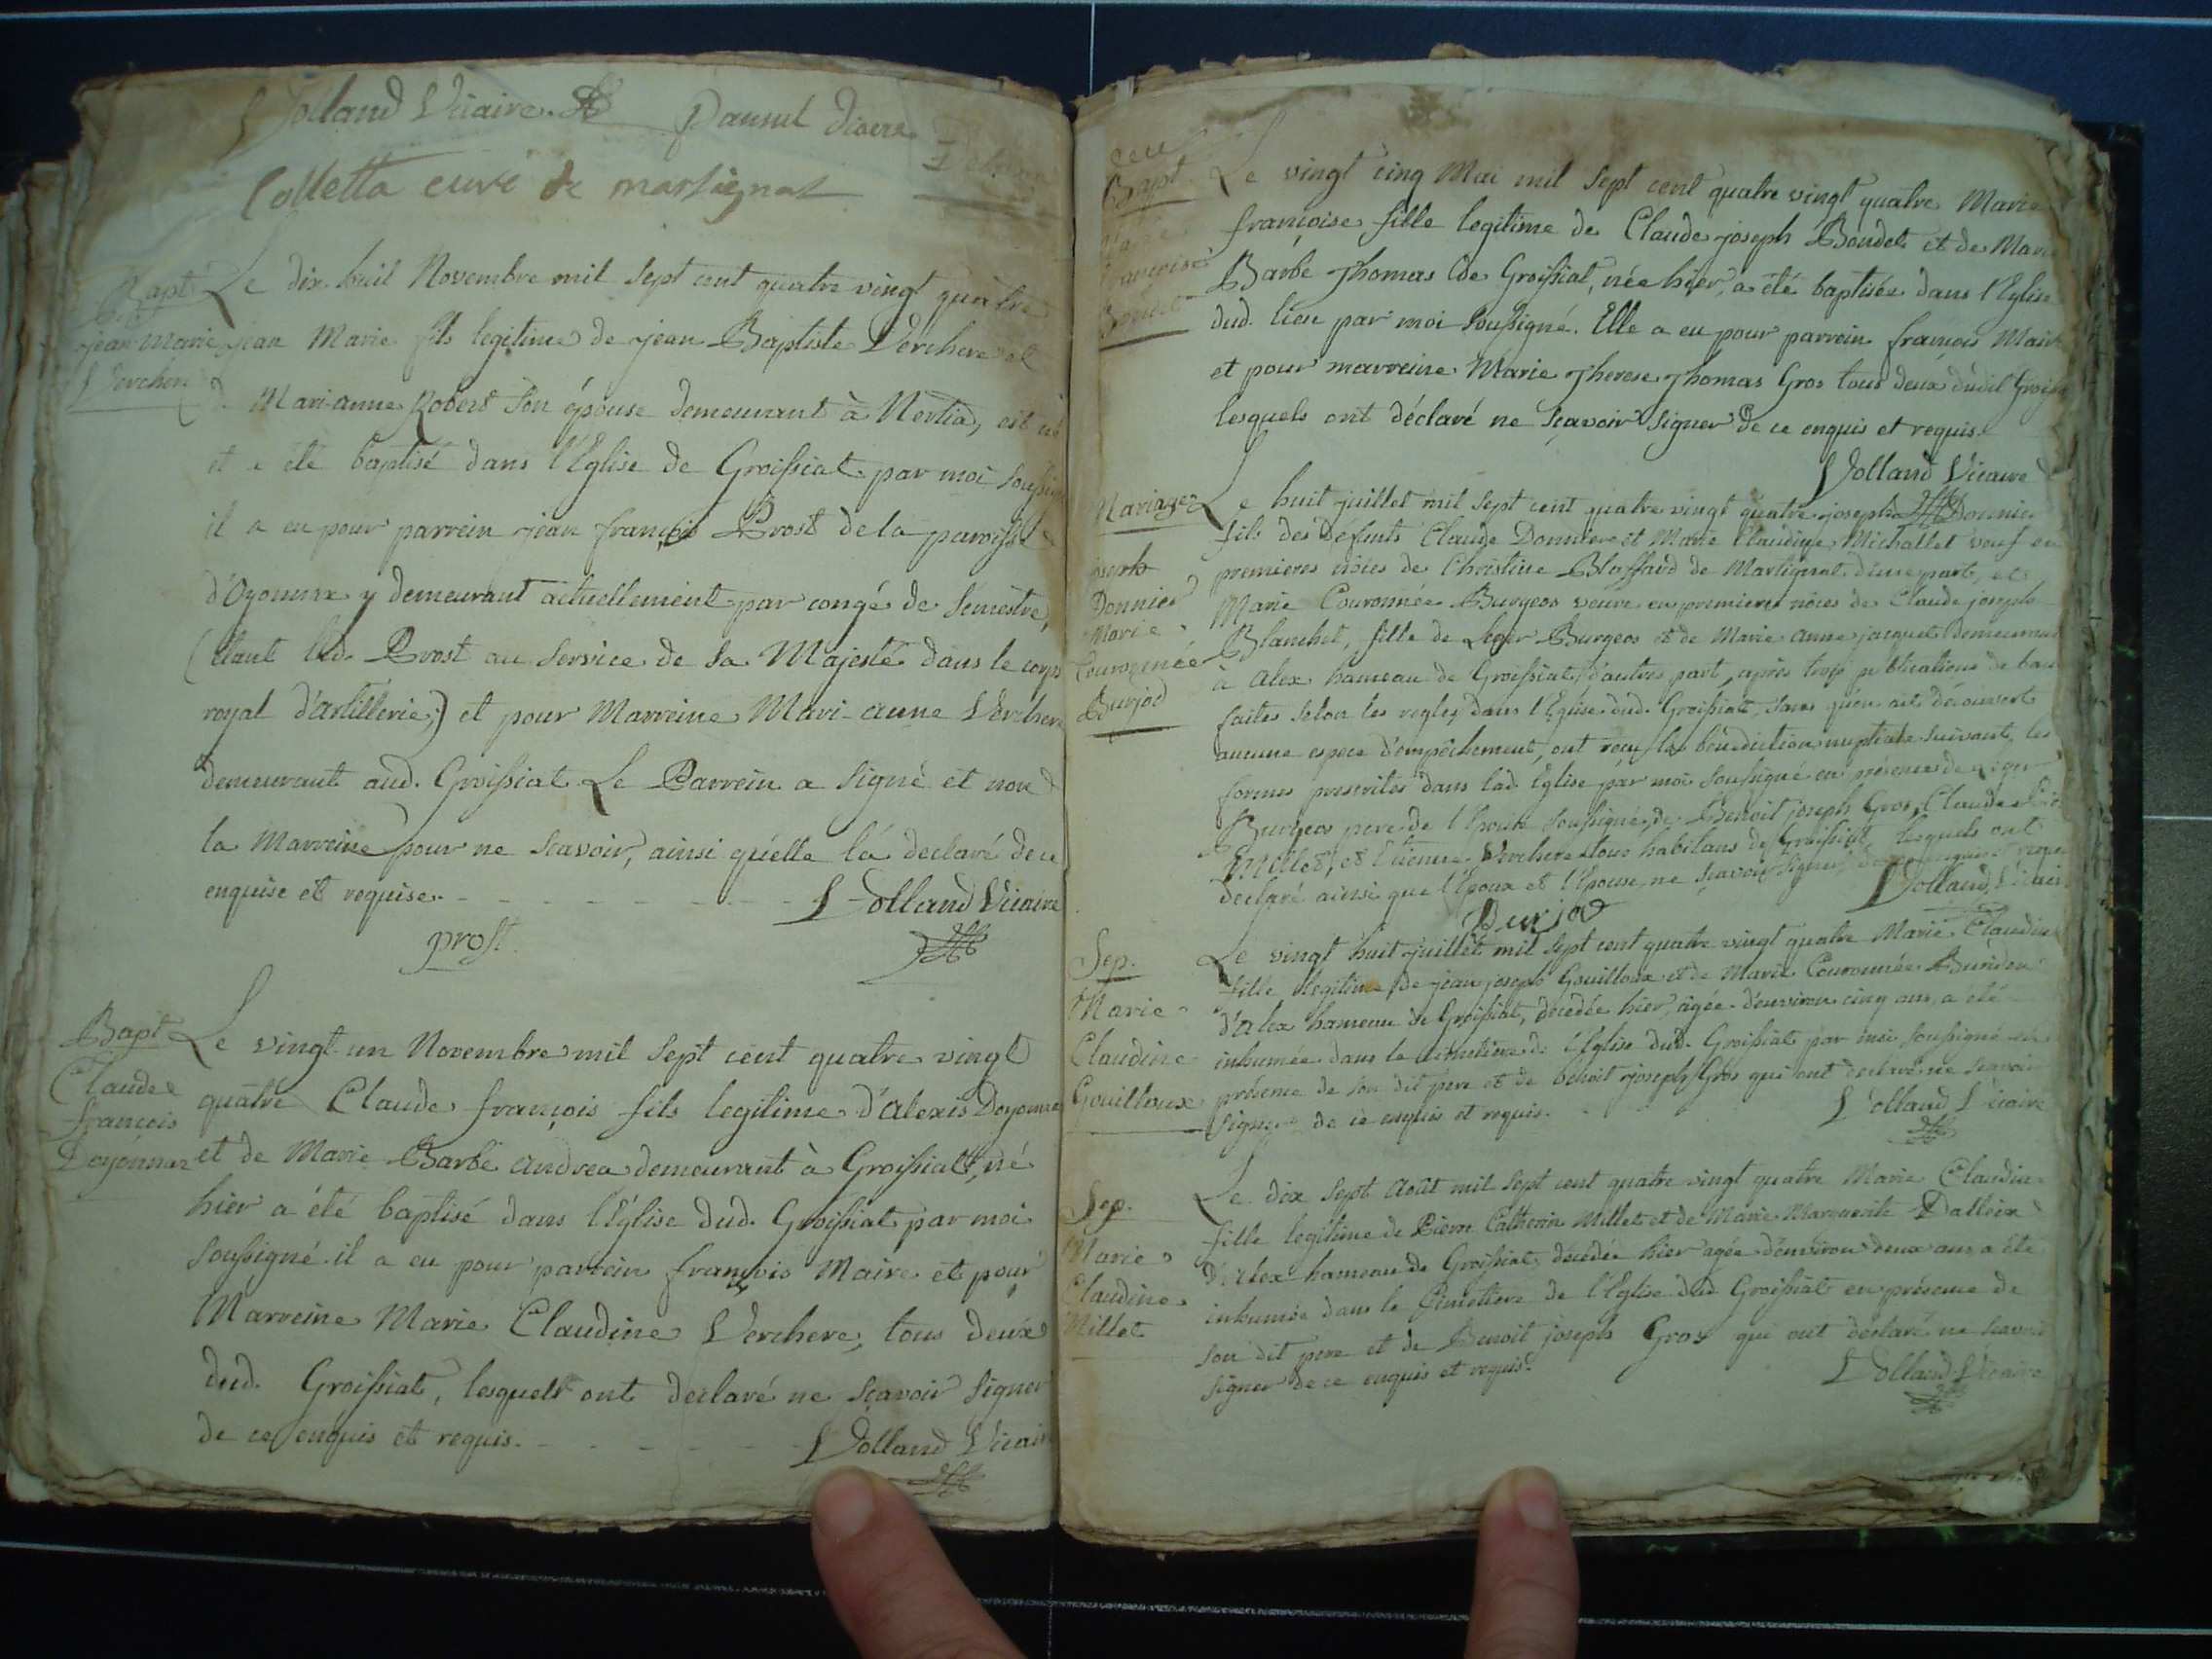 Volland Vicaire
Colletta curé de martignat
Bapt
jean marie
Verchere
Le dix-huit Novembre mil sept cent quatre vingt quatre
jean Marie fils legitime de jean Baptiste Verchere et
Mari-anne Robert son épouse demeurant à Nertia, est né
et a été baptisé dans l'Eglise de Groissiat par moi soussigné
il a eu pour parrein jean françois Prost de la paroisse
d'Oyonnax y demeurant actuellement par congé de semestre,
(étant led. Prost au service de sa Majesté dans le corps
royal d'artillerie;) et pour Marreine Mari-anne Verchere
demeurant aud. Groissiat. Le Parrein a signé et non
la Marreine pour ne scavoir, ainsi qu'elle l'a declaré de ce
enquise et requise. - - - - - - Volland Vicaire
prost
Bapt
Claude
françois
Doyonnax
Le vingt-un Novembre mil sept cent quatre vingt
quatre Claude françois fils legitime d'alexis Doyonnax
et de Marie Barbe andrea demeurant à Groissiat, né
hier a été baptisé dans l'Eglise dud. Groissiat par moi
soussigné. il a eu pour parrein françois Maire et pour
Marreine Marie Claudine Verchere, tous deux
dud. Groissiat, lesquels ont declaré ne sçavoir signer
de ce enquis et requis. - - - - - Volland Vicaire
Bapt
Le vingt cinq Mai mil sept cent quatre vingt quatre Marie
françoise fille legitime de Claude joseph Boudet et de Marie
Barbe Thomas de Groissiat, née hier, a été baptisée dans l'Eglise
dud. lieu par moi soussigné. Elle a eu pour parrein françois Maire
et pour marreine Marie Therese Thomas Gros tous deux dudit
lesquels ont déclaré ne sçavoir signer de ce enquis et requis.
Volland Vicaire
Mariage
joseph
Donnier
Marie
Couronnée
Burjod
Le huit juillet mil sept cent quatre vingt quatre joseph Donnier
fils des défunts Claude Donnier et Marie Claudine Michallet veuf en
premieres nôces de Christine Blaffard de Martignat d'une part, et
Marie Couronnée Burgeos veuve en premieres nôces de Claude joseph
Blanchet, fille de Leger Burgeos et de Marie anne jacquet demeurant
à alex hameau de Groissiat, d'autre part, après trois publications de bans
faites selon les regles dans l'Eglise dud. Groissiat, sans qu'on ait découvert
aucune espece d'empêchement, ont reçu la bénédiction nuptiale suivant les
formes prescrites dans lad. Eglise par moi soussigné en présence de Leger
Burgeos pere de l'Epouse soussigné, de Benoit joseph Gros, Claude
Millet, et Etienne Verchere tous habitans de Groissiat, lesquels ont
declaré ainsi que l'Epoux et l'Epouse, ne sçavoir signer, de ce enquis et requis
Volland Vicaire
Burjod
Sep.
Marie
Claudine
Gouilloux
Le vingt huit juillet mil sept cent quatre vingt quatre Marie Claudine
fille legitime de jean joseph Gouilloux et de Marie Couronnée
d'alex hameau de Groissiat, décédée hier, agée d'environ cinq ans, a été
inhumée dans le cimetiere de l'Eglise dud. Groissiat par moi soussigné en
présence de son dit pere et de benoit joseph Gros qui ont declaré ne scavoir
signer de ce enquis et requis. Volland Vicaire
Sep.
Marie
Claudine
Millet
Le dix sept Août mil sept cent quatre vingt quatre Marie Claudine
fille legitime de Pierre Catherin Millet et de Marie Marguerite
d'alex hameau de Groissiat, décédée hier agée d'environ deux ans a été
inhumée dans le Cimetiere de l'Eglise dud. Groissiat en présence de
son dit pere et de Benoit joseph Gros qui ont déclaré ne scavoir
signer de ce enquis et requis. Volland Vicaire